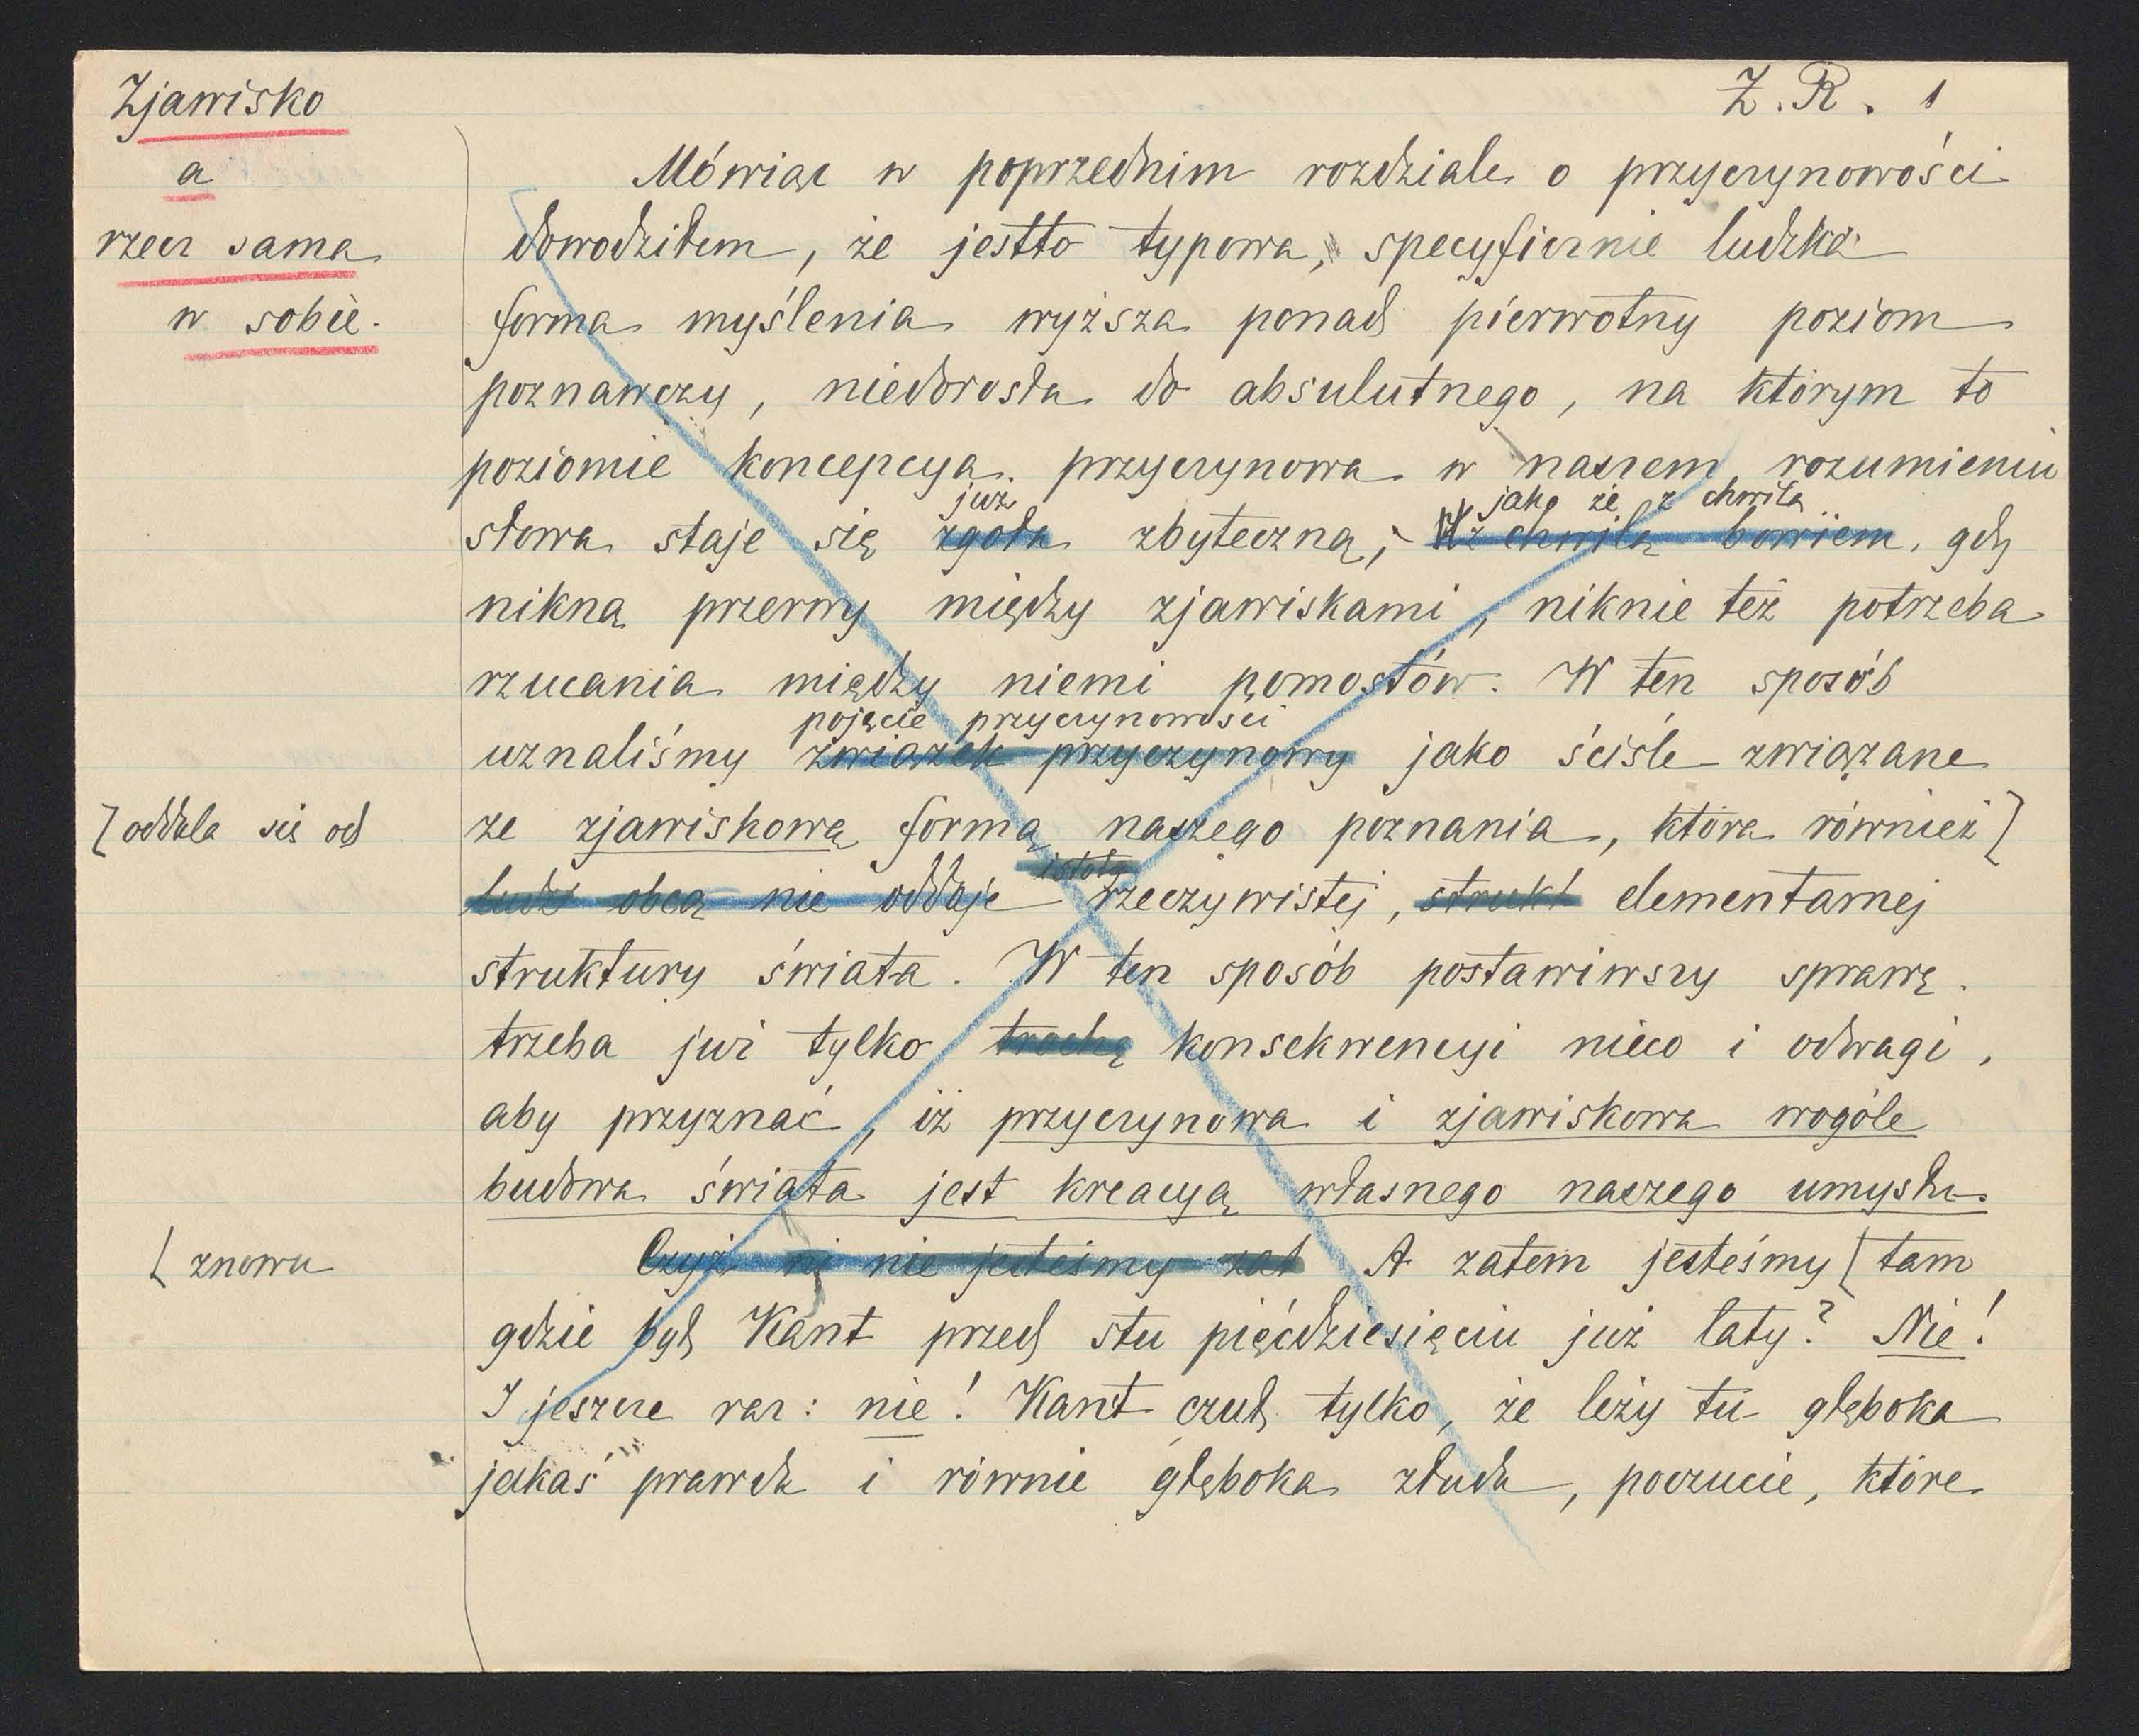 Zjawisko
a
rzecz sama
w sobie.
Z. R. 1
Mówiąc w poprzednim rozdziale o przyczynowości
dowodziłem, że jestto typowa, specyficznie ludzka
forma myślenia wyższa ponad pierwotny poziom
poznawczy, niedorosła do absulutnego, na którym to
poziomie koncepcya przyczynowa w naszem rozumieniu
już jako że z chwilą
słowa staje się zgoła zbyteczną; z chwilą bowiem, gdy
nikną przerwy między zjawiskami, niknie też potrzeba
rzucania między niemi pomostów. W ten sposób
pojęcie przyczynowości
uznaliśmy związek przyczynowy jako ściśle związane
[oddala się od
ze zjawiskową formą naszego poznania, która również]
istotą
obcą nie oddaje rzeczywistej, strukt elementarnej
struktury świata. W ten sposób postawiwszy sprawę
trzeba już tylko trochę konsekwencyi nieco i odwagi,
aby przyznać, iż przyczynowa i zjawiskowa wogóle
budowa świata jest kreacyą własnego naszego umysłu.
[znowu
Czyż ni nie jesteśmy zat A zatem jesteśmy [tam
gdzie był Kant przed stu pięćdziesięciu już laty? Nie!
I jeszcze raz: nie! Kant czuł tylko, że leży tu głęboka
jakaś prawda i równie głęboka złuda, poczucie, które